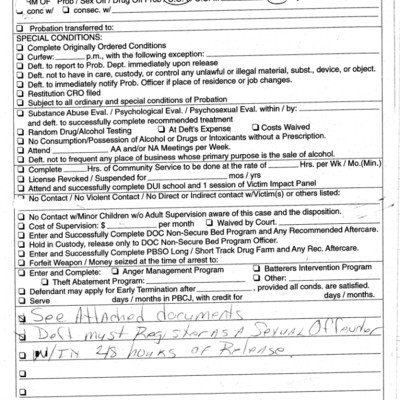 ☐ conc w/ ☐ consec w/
☐ Probation transferred to:
SPECIAL CONDITIONS:
☐ Complete Originally Ordered Conditions
☐ Curfew: p.m., with the following exception:
☐ Deft. to report to Prob. Dept. immediately upon release
☐ Deft. not to have in care, custody, or control any unlawful or illegal material, subst., device, or object.
☐ Deft. to immediately notify Prob. Officer if place of residence or job changes.
☐ Restitution CRO filed
☐ Subject to all ordinary and special conditions of Probation
☐ Substance Abuse Eval. / Psychological Eval. / Psychosexual Eval. within / by:
and deft. to successfully complete recommended treatment
☐ Random Drug/Alcohol Testing ☐ At Deft's Expense ☐ Costs Waived
☐ No Consumption/Possession of Alcohol or Drugs or Intoxicants without a Prescription.
☐ Attend AA and/or NA Meetings per Week.
☐ Deft. not to frequent any place of business whose primary purpose is the sale of alcohol.
☐ Complete Hrs. of Community Service to be done at the rate of Hrs. per Wk / Mo.(Min.)
☐ License Revoked / Suspended for mos / yrs
☐ Attend and successfully complete DUI school and 1 session of Victim Impact Panel
☐ No Contact / No Violent Contact / No Direct or Indirect contact w/Victim(s) or others listed:
☐ No Contact w/Minor Children w/o Adult Supervision aware of this case and the disposition.
☐ Cost of Supervision: $ per month ☐ Waived by Court.
☐ Enter and Successfully Complete DOC Non-Secure Bed Program and Any Recommended Aftercare.
☐ Hold in Custody, release only to DOC Non-Secure Bed Program Officer.
☐ Enter and Successfully Complete PBSO Long / Short Track Drug Farm and Any Rec. Aftercare.
☐ Forfeit Weapon / Money seized at the time of arrest to:
☐ Enter and Complete: ☐ Anger Management Program ☐ Batterers Intervention Program
☐ Theft Abatement Program: ☐ Other:
☐ Defendant may apply for Early Termination after , provided all conds. are satisfied.
☐ Serve days / months in PBCJ, with credit for days / months.
See Attached documents
Deft must Register as A Sexual Offender
W/IN 48 hours of Release.